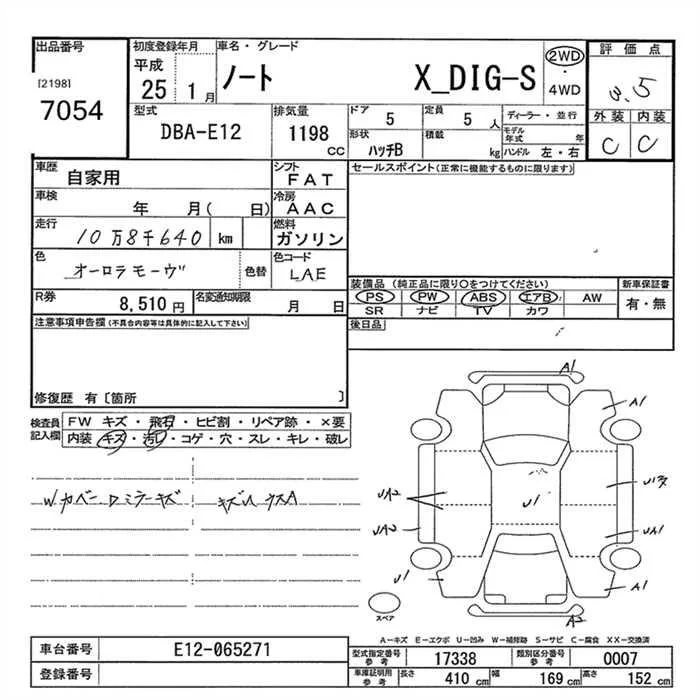 出品番号 初度登録年月 車名・グレード 評価点
[2198] 平成 2WD
7054 25 1月 ノート X_DIG-S ・ 3.5
4WD
外装 内装
C C
型式 排気量 ドア 定員 ディーラー・並行
DBA-E12 1198 CC 5 5 人 モデル年式 年
形状 積載
ハッチB kg ハンドル 左・右
車歴 自家用 シフト FAT セールスポイント(正常に機能するものに限ります)
車検 年 月( 日) 冷房 AAC
走行 10万8千640 km 燃料 ガソリン
色 オーロラモーヴ 色替 色コード LAE
装備品 (純正品に限り○をつけてください) 新車保証書
PS PW ABS エアB AW 有・無
SR ナビ TV カワ
R券 8,510円 名変通知期限 月 日
後日品
注意事項申告欄(不具合内容等は具体的に記入して下さい)
修復歴 有〔箇所 〕
検査員記入欄 FW キズ・飛石・ヒビ割・リペア跡・×要
内装 キズ・汚レ・コゲ・穴・スレ・キレ・破レ
Wカバー ロミラーキズ キズU ウスA
A1
A1
UA2 U1 U1
UA2 UA1
U1 A1
A2
スペア
A-キズ E-エクボ U-凹み W-補修跡 S-サビ C-腐食 XX-交換済
車台番号 E12-065271
登録番号
型式指定番号 参考 17338 類別区分番号 参考 0007
車庫証明用 参考 長さ 410 cm 幅 169 cm 高さ 152 cm